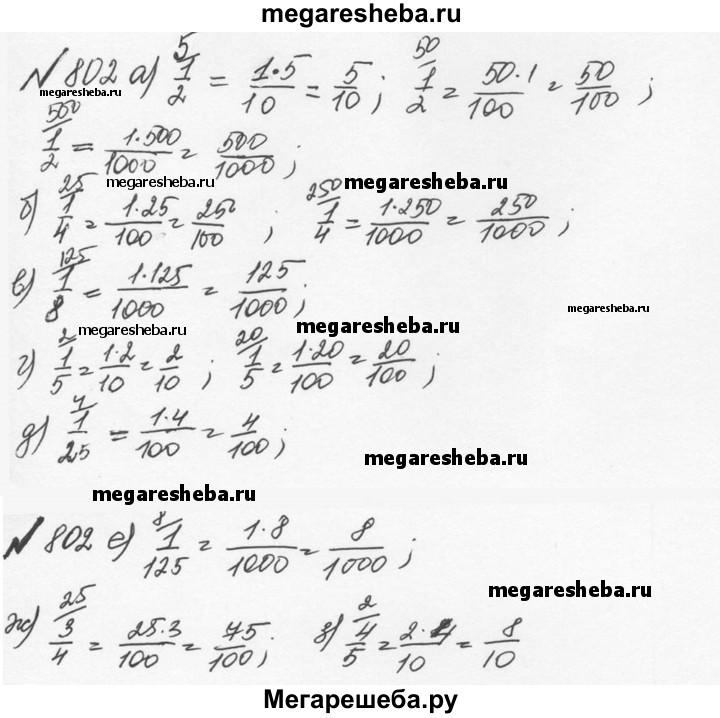 megaresheba.ru
№ 802 а) ⁵/ 1/2 = 1·5/10 = 5/10; ⁵⁰/ 1/2 = 50·1/100 = 50/100;
megaresheba.ru
⁵⁰⁰/ 1/2 = 1·500/1000 = 500/1000;
megaresheba.ru megaresheba.ru
б) ²⁵/ 1/4 = 1·25/100 = 250/100; ²⁵⁰/ 1/4 = 1·250/1000 = 250/1000;
в) ¹²⁵/ 1/8 = 1·125/1000 = 125/1000;
megaresheba.ru
megaresheba.ru megaresheba.ru
г) ²/ 1/5 = 1·2/10 = 2/10; ²⁰/ 1/5 = 1·20/100 = 20/100;
д) ⁴/ 1/25 = 1·4/100 = 4/100;
megaresheba.ru
megaresheba.ru
№ 802 е) ⁸/ 1/125 = 1·8/1000 = 8/1000;
megaresheba.ru
ж) ²⁵/ 3/4 = 25·3/100 = 75/100; з) ²/ 4/5 = 2·4/10 = 8/10
Мегарешеба.ру